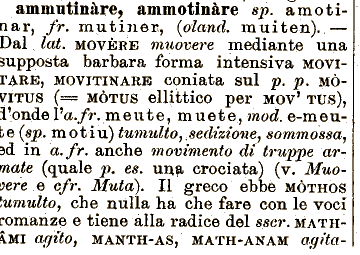 ammutinàre, ammotinàre sp. amoti-
nar, fr. mutiner, (oland. muiten). —
Dal lat. MOVÈRE muovere mediante una
supposta barbara forma intensiva MOVI-
TARE, MOVITINARE coniata sul p. p. MÒ-
VITUS (= MÒTUS ellittico per MOV' TUS),
d'onde l'a.fr. meute, muete, mod. e-meu-
te (sp. motiu) tumulto, sedizione, sommossa,
ed in a. fr. anche movimento di truppe ar-
mate (quale p. es. una crociata) (v. Muo-
vere e cfr. Muta). Il greco ebbe MÒTHOS
tumulto, che nulla ha che fare con le voci
romanze e tiene alla radice del sscr. MATH-
ÂMI agito, MANTH-AS, MATH-ANAM agita-